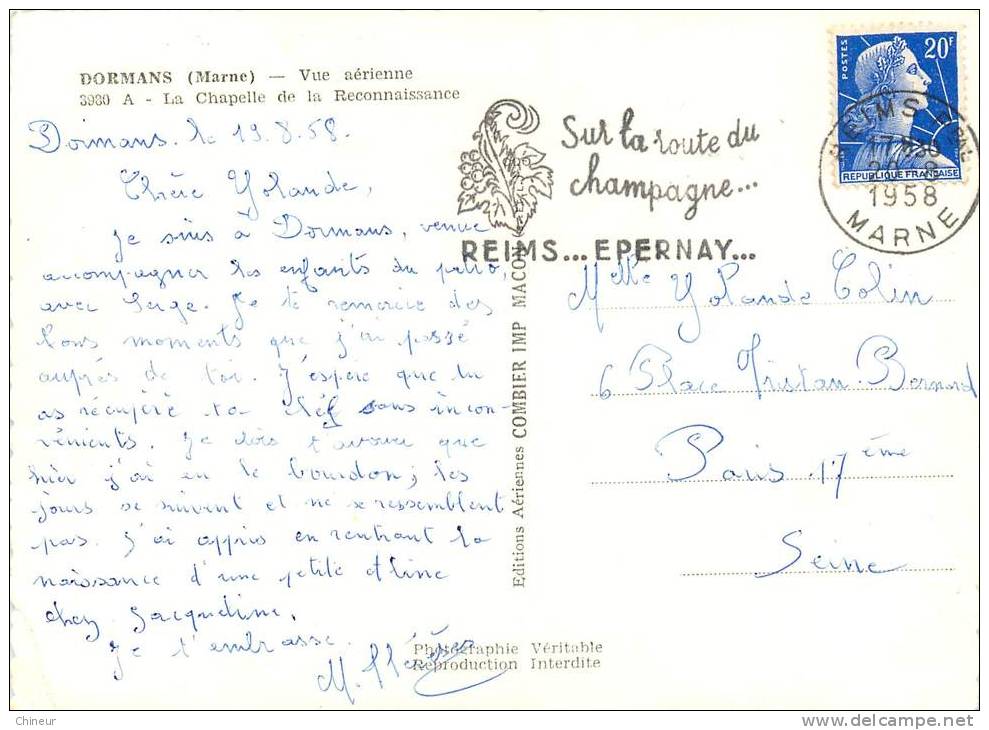 DORMANS (Marne) — Vue aérienne
3930 A - La Chapelle de la Reconnaissance
Dormans. le 19.8.58.
Chère Yolande,
Je suis à Dormans, venue
accompagner les enfants du patro,
avec Serge. Je te remercie des
bons moments que j'ai passé
auprès de toi. J'espère que tu
as récupéré ta clef sans incon-
vénients. Je dois t'avouer que
hier j'ai eu le bourdon; les
jours se suivent et ne se ressemblent
pas. J'ai appris en rentrant la
naissance d'une petite Aline
chez Jacqueline.
Je t'embrasse.
M. Thérèse
Editions Aériennes COMBIER IMP MACON
Photographie Véritable
Reproduction Interdite
Sur la route du
champagne...
REIMS... EPERNAY...
POSTES
20F
REPUBLIQUE FRANÇAISE
REIMS
1958
MARNE
Melle Yolande Colin
6 Place Tristan Bernard
Paris 17ème
Seine
Chineur
delcampe.net